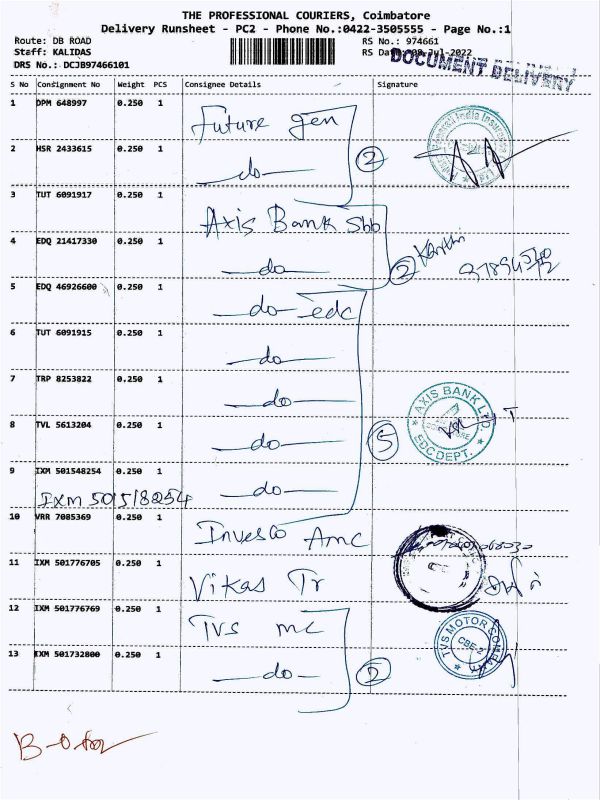 THE PROFESSIONAL COURIERS, Coimbatore
Delivery Runsheet - PC2 - Phone No.:0422-3505555 - Page No.:1
Route: DB ROAD
RS No.: 974661
Staff: KALIDAS
RS Date: 08-Jul-2022
DRS No.: DCJB97466101
DOCUMENT DELIVERY
S No Consignment No Weight PCS Consignee Details Signature
1 DPM 648997 0.250 1 Future gen
2 HSR 2433615 0.250 1 do
2
3 TUT 6091917 0.250 1 Axis Bank Sbb
4 EDQ 21417330 0.250 1 do
2
5 EDQ 46926600 0.250 1 do edc
6 TUT 6091915 0.250 1 do
7 TRP 8253822 0.250 1 do
8 TVL 5613204 0.250 1 do
5
AXIS BANK LTD
EDC DEPT.
9 IXM 501548254 0.250 1 do
IXM 501518254
10 VRR 7085369 0.250 1 Invesco Amc
11 IXM 501776705 0.250 1 Vikas Tr
12 IXM 501776769 0.250 1 TVS mc
TVS MOTOR COMPANY
CBE-2
13 IXM 501732800 0.250 1 do
2